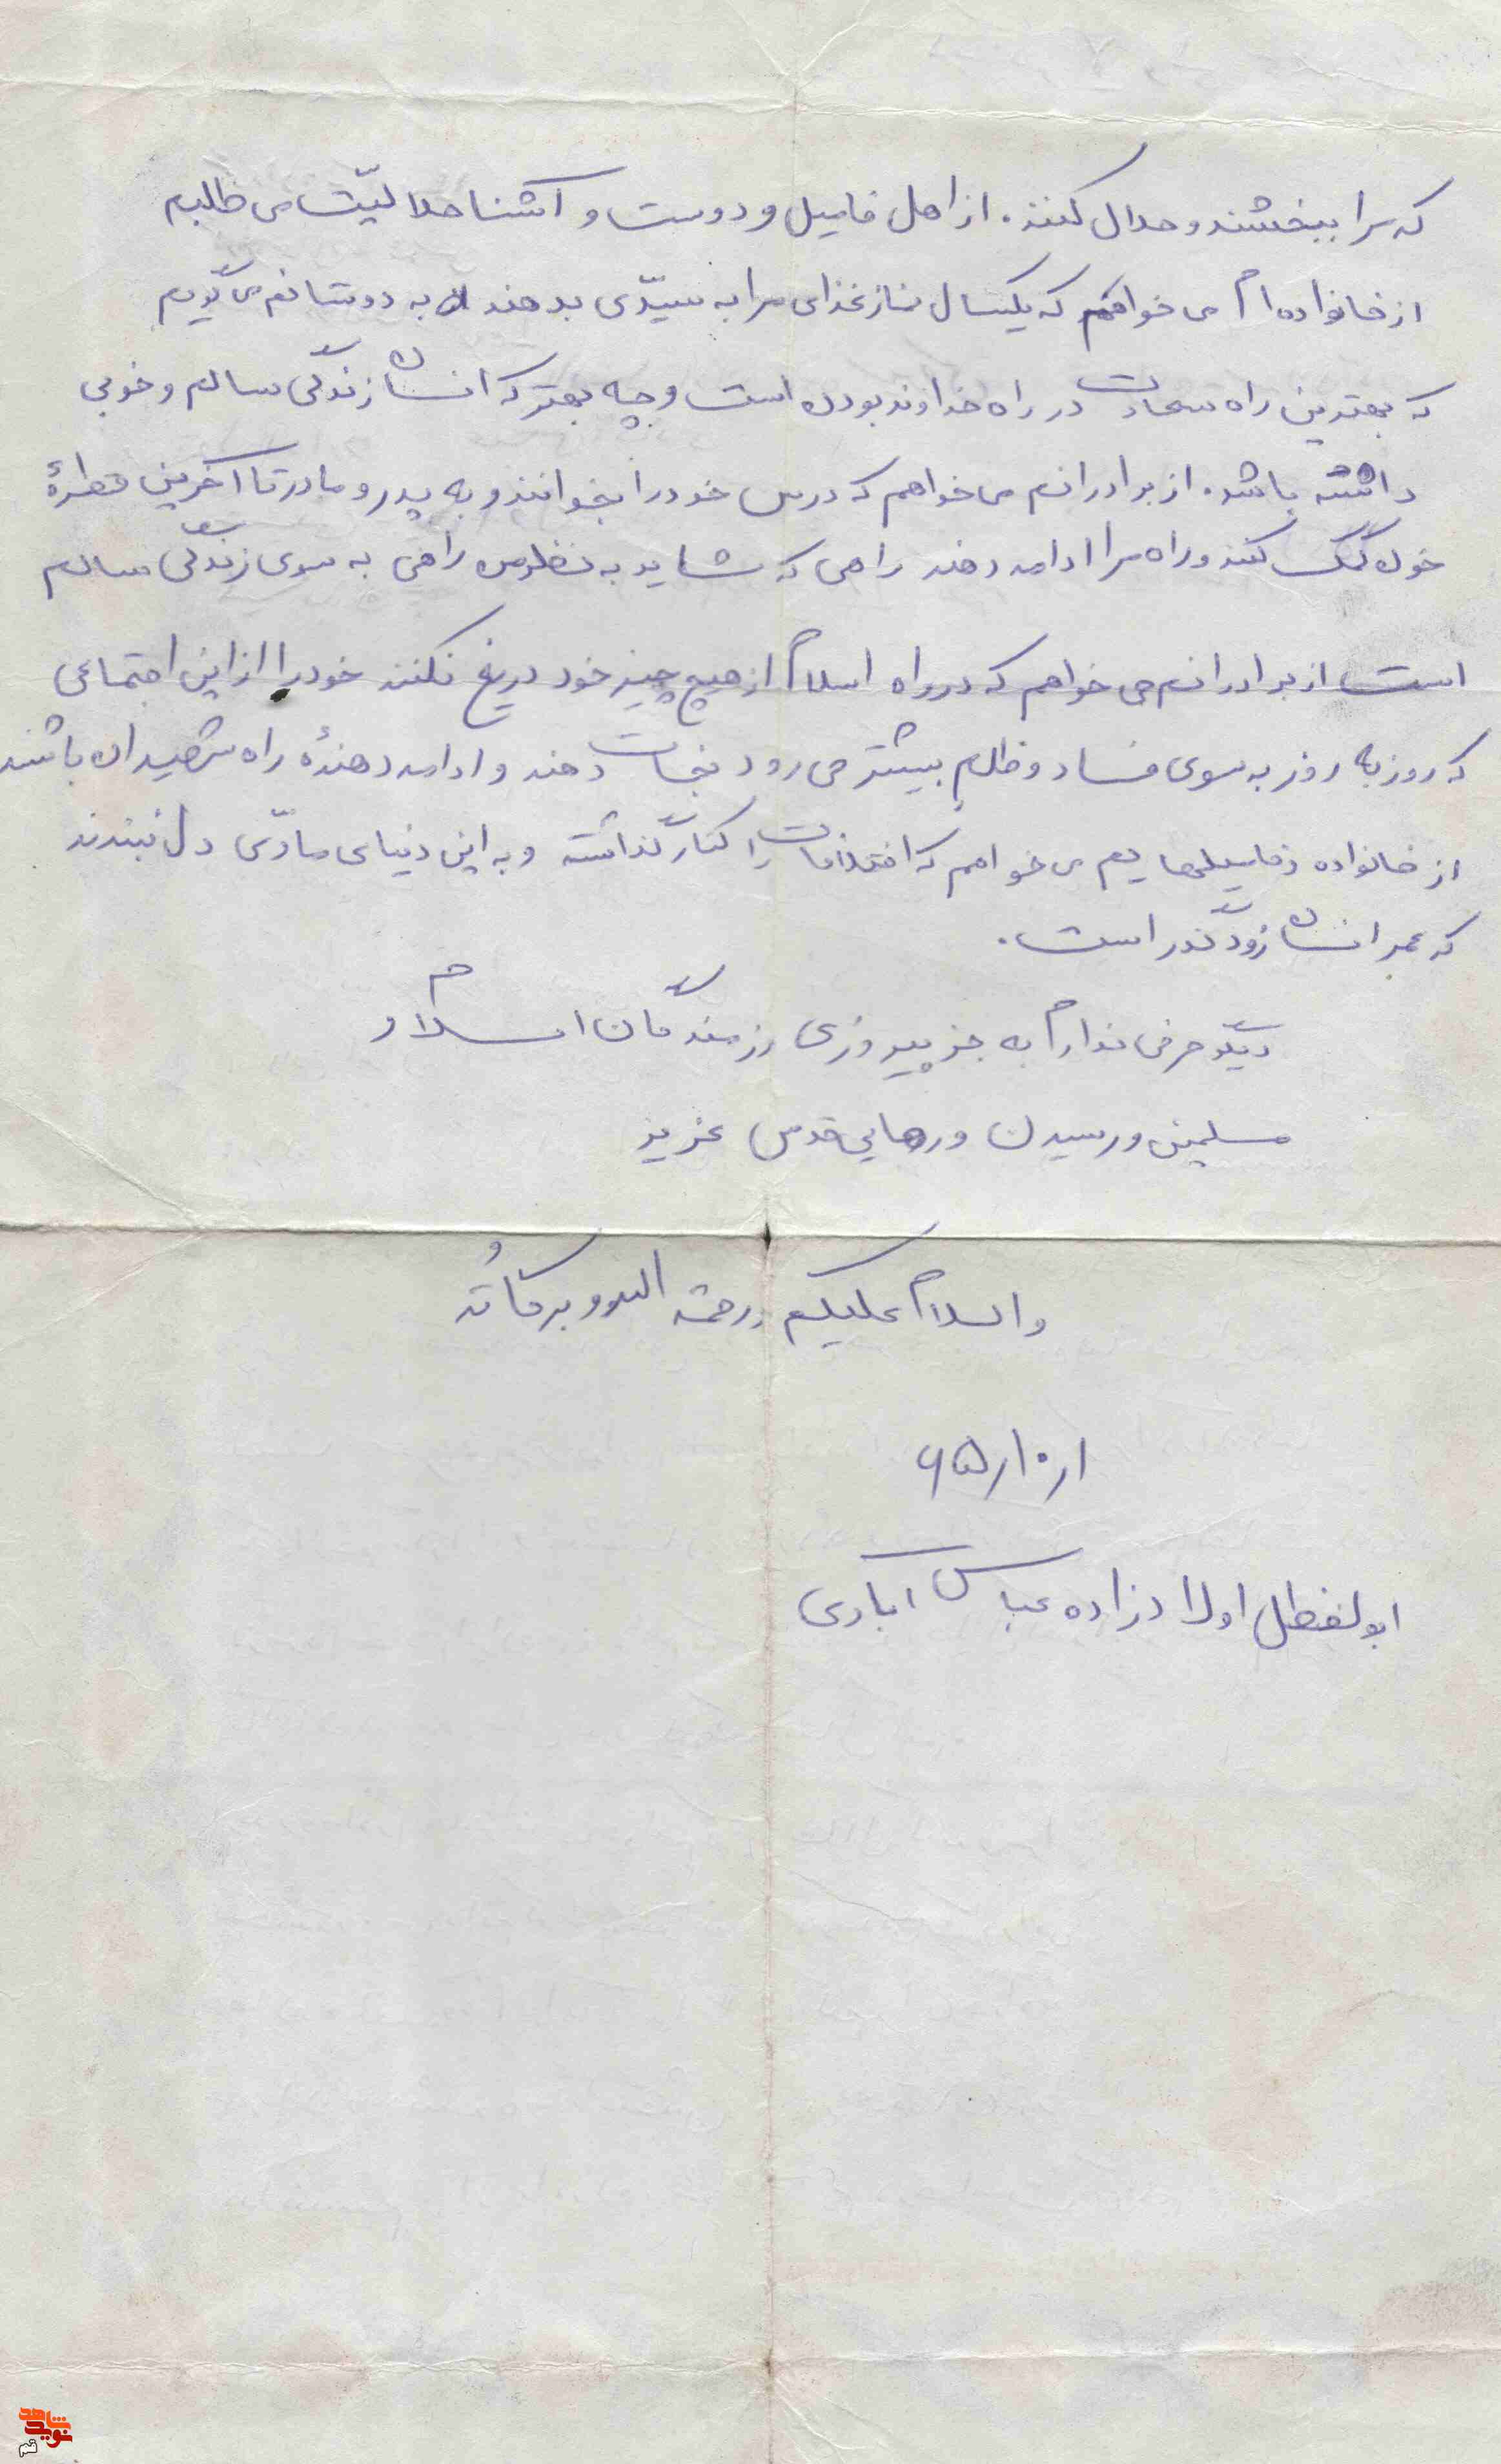 که مرا ببخشند و حلال کنند. از اهل فامیل و دوست و آشنا حلالیّت می طلبم
از خانواده ام می خواهم که یکسال نماز غذای مرا به سیّدی بدهند به دوستانم می گویم
که بهترین راه سعادت در راه خداوند بودن است و چه بهتر که انسان زندگی سالم و خوبی
داشته باشد. از برادرانم می خواهم که درس خود را بخوانند و به پدر و مادر تا آخرین قطرهٔ
خون کمک کنند و راه مرا ادامه دهند راهی که شاید به نظرمن راهی به سوی زندگی سالم
است از برادرانم می خواهم که در راه اسلام از هیچ چیز خود دریغ نکنند خود را از این اجتماعی
که روز به روز به سوی فساد و ظلم بیشتر می رود نجات دهند و ادامه دهندهٔ راه شهیدان باشند
از خانواده و فامیلهایم می خواهم که اختلافات را کنار گذاشته و به این دنیای مادّی دل نبندند
که عمر انسان زودگذر است.
دیگر حرفی ندارم به جز پیروزی رزمندگان اسلام و
مسلمین و رسیدن و رهایی قدس عزیز
والسلام علیکم و رحمته الله و برکاتُه
۶۵/۱۰/۱
ابولفضل اولادزاده عباس آبادی
نوید شاهد
قم